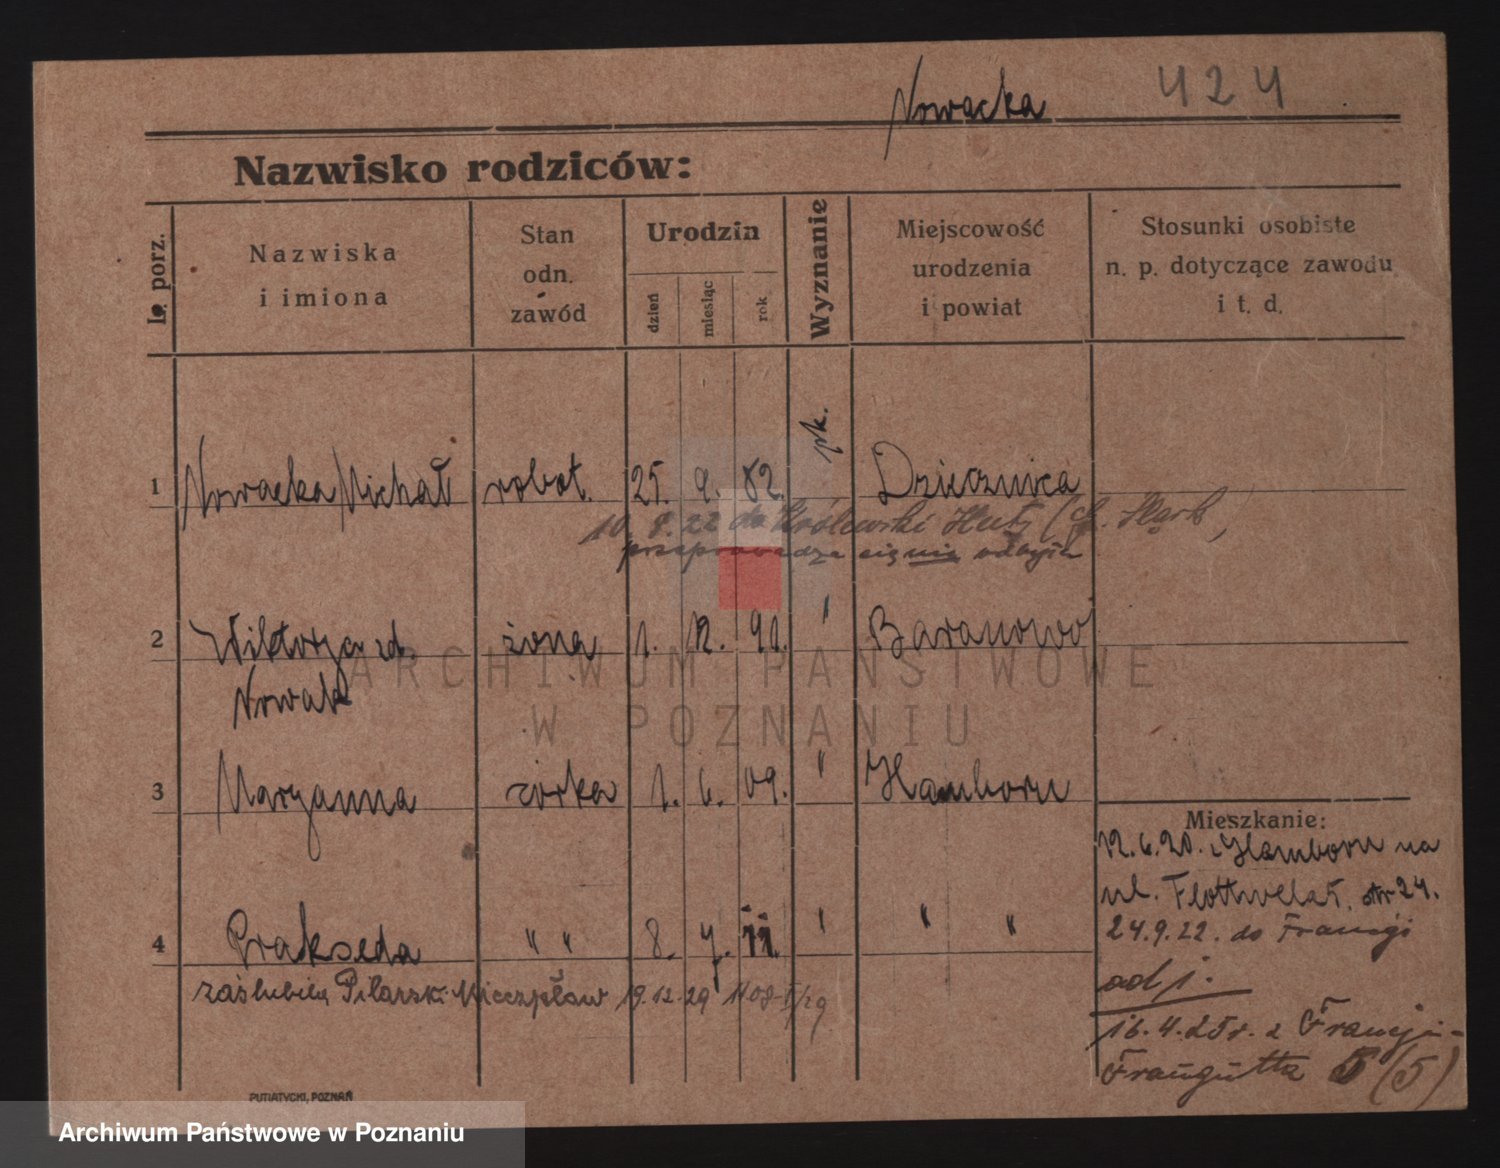 Nowacka 424
Nazwisko rodziców:
L. porz.
Nazwiska
i imiona
Stan
odn.
zawód
Urodzin
dzień
miesiąc
rok
Wyznanie
Miejscowość
urodzenia
i powiat
Stosunki osobiste
n. p. dotyczące zawodu
i t. d.
1 Nowacka Michał robot. 25. 9. 82. rk.
10. 8. 22 do Królewski Huty
przeprowadza się nie odbyła
2 Wiktorja zd. żona 1. 12. 91. " Baranowo
Nowak
3 Maryanna córka 1. 6. 09. " Hamborn
Mieszkanie:
12.6.20. z Hamborn na
ul. Flottwelst. 24.
4 Prakseda " " 8. 7. 11. " " "
24.9.22. do Francji
zaślubiła Pilarski Mieczysław 19.12.29
adj.
16.4.25r. z Francji-
5 (5)
PUTIATYCKI, POZNAŃ
ARCHIWUM PAŃSTWOWE
W POZNANIU
Archiwum Państwowe w Poznaniu